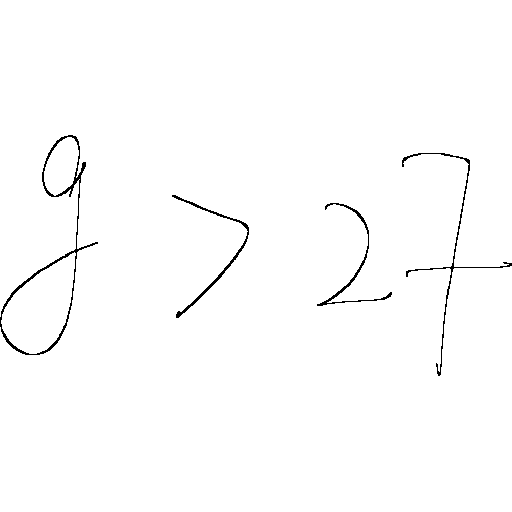 g > 27